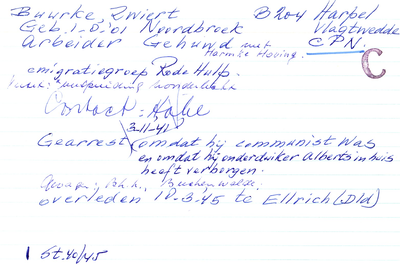 Buurke, Zwiert B204 Harpel
Geb. 1-8-'01 Noordbroek Vlagtwedde
Arbeider Gehuwd met CPN.
Harmke Hoving.
C
emigratiegroep Rode Hulp.
Contact:
3-11-41
Gearrest. omdat hij communist was
en omdat hij onderduiker Alberts in huis
heeft verborgen.
Buchenwalde.
overleden 3-45 te Ellrich (Dld)
1 St. 40/45